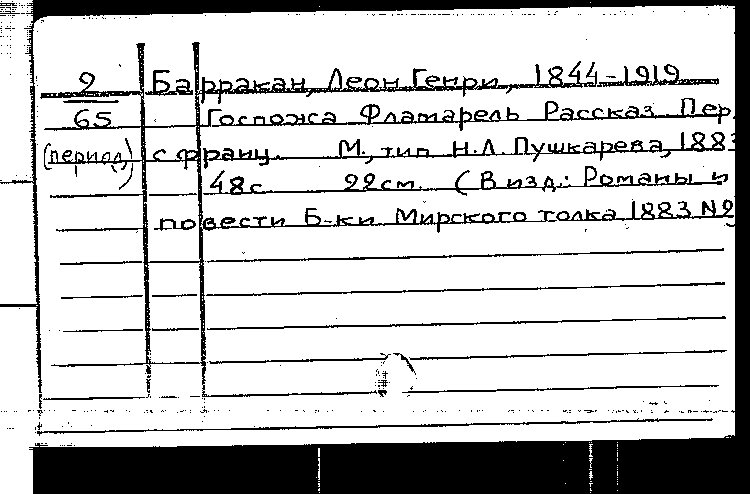 2 Барракан, Леон Генри, 1844-1919
65 Госпожа Фламарель Рассказ Пер.
(период) с франц. М., тип. Н.Л. Пушкарева, 1883
48с 22см. (В изд.: Романы и
повести Б-ки Мирского толка 1883 №2